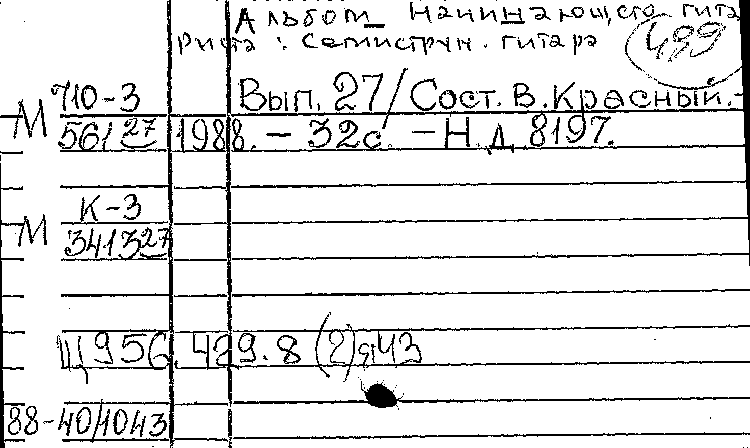 Альбом начинающего гита
риста: Семиструн. гитара
499
710-3 Вып. 27/Сост. В. Красный. -
М 561 27 1988. – 32с. – Н. д. 8197.
К-3
М 3413 27
Щ956.429.8(2)я43
88-40/1043